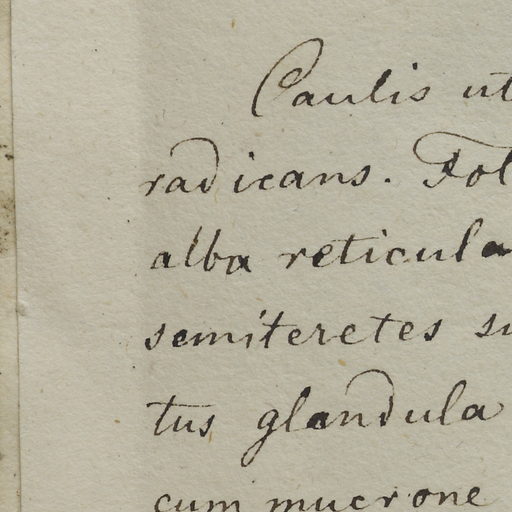 Caulis ut
radicans. Fol
alba reticula
semiteretes su
tus glandula
cum mucrone